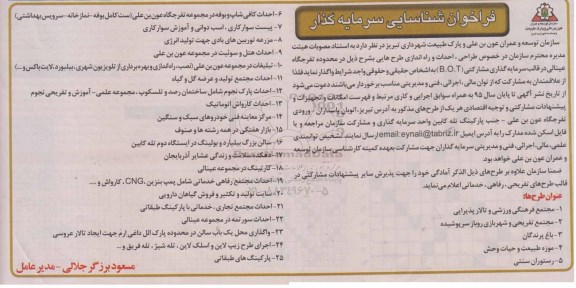 فراخوان شناسایی سرمایه گذار
سازمان توسعه و عمران عون بن علی و پارک طبیعت شهرداری تبریز در نظر دارد به استناد مصوبات هیئت
مدیره محترم در خصوص طراحی، احداث و راه اندازی طرح هایی بشرح ذیل در محدوده تفرجگاه
عینالی در قالب سرمایه گذاری مشارکتی (B.O.T) به اشخاص حقیقی و حقوقی واجد شرایط واگذار نماید لذا
از علاقمندان به مشارکت که از توان مالی، اجرائی، فنی و مدیریتی مناسب برخوردار می باشند دعوت می شود
از تاریخ نشر آگهی تا پایان سال ۹۵ به همراه سوابق اجرایی و کاری مرتبط و فهرست امکانات و تجهیزات و
پیشنهادات مشارکتی و توجیه اقتصادی هر یک از طرح های مذکور به آدرس تبریز، اتوبان پاسداران، ورودی
تفرجگاه عون بن علی - جنب پارکینگ تله کابین واحد سرمایه گذاری و مشارکت سازمان مراجعه و یا
فایل اسکن شده مدارک را به آدرس ایمیل email:eynali@tabriz.ir ارسال نمایند. تشخیص توانمندی
علمی، مالی، اجرائی، فنی و مدیریتی سرمایه گذاران جهت مشارکت بعهده کمیته کارشناسی سازمان توسعه
و عمران عون بن علی خواهد بود.
ضمنا سازمان علاوه بر طرح های ذیل الذکر آمادگی خود را جهت پذیرش سایر پیشنهادات مشارکتی در
قالب طرح های تفریحی، رفاهی، خدماتی اعلام می نماید.
عنوان طرح ها:
۱- مجتمع فرهنگی ورزشی و تالار پذیرایی
۲- مجتمع تفریحی و شهربازی روباز سرپوشیده
۳- باغ پرندگان
۴- موزه طبیعت و حیات وحش
۵- رستوران سنتی
۶- احداث کافی شاپ و بوفه در مجموعه تفرجگاه عون بن علی (ست کامل بوفه - نمازخانه - سرویس بهداشتی)
۷- پیست سوارکاری، اسب دوانی و آموزش سوارکاری
۸- مزرعه توربین های بادی جهت تولید انرژی
۹- احداث هتل و سوئیت در مجموعه عون بن علی
۱۰- تبلیغات در مجموعه عون بن علی (نصب، راه اندازی و بهره برداری از تلویزیون شهری، بیلبورد، لایت باکس و...)
۱۱- احداث مجتمع تولید و عرضه گل و گیاه
۱۲- احداث پارک نجوم شامل ساختمان رصد و تلسکوپ، مجموعه علمی - آموزش و تفریحی نجوم
۱۳- احداث کارواش اتوماتیک
۱۴- مرکز معاینه فنی خودروهای سبک و سنگین
۱۵- بازار هفتگی در همه رشته ها و صنوف
۱۶- سالن بزرگ بیلیارد و بولینگ در ایستگاه دوم تله کابین
۱۷- دهکده سلامت و زندگی عشایر آذربایجان
۱۸- کارتینگ در مجموعه عینالی
۱۹- احداث مجتمع رفاهی خدماتی شامل پمپ بنزین، CNG، کارواش و...
۲۰- سایت تولید و تکثیر و فروش گیاهان دارویی
۲۱- احداث مجتمع تجاری، خدماتی با پارکینگ طبقاتی
۲۲- احداث سورتمه در مجموعه عینالی
۲۳- واگذاری محل یک باب سالن در محدوده پارک ائل داغی ارم جهت ایجاد تالار عروسی
۲۴- اجرای طرح زیپ لاین و اسلک لاین، تله شیژ، تله فریق و...
۲۵- پارکینگ های طبقاتی
مسعود برزگر جلالی - مدیر عامل